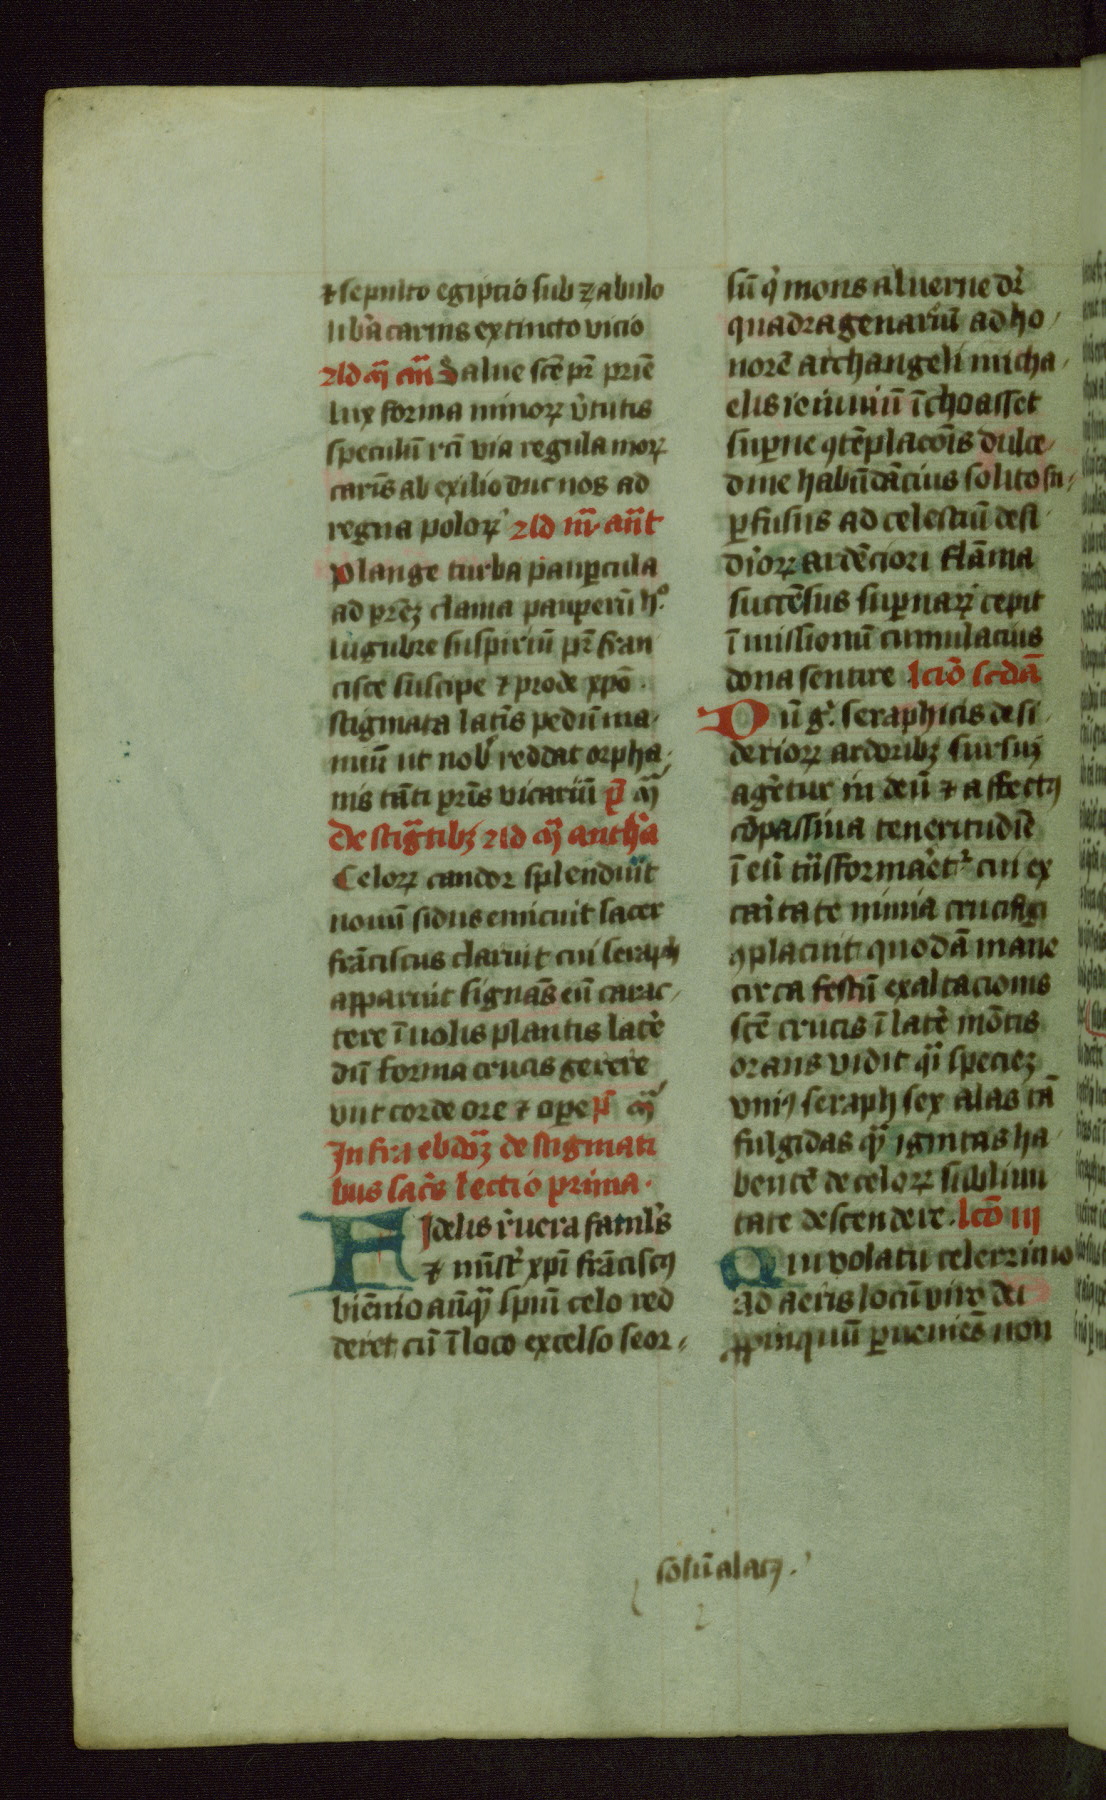 ⁊ sepulto egiptio sub zabulo
lib̾a carnis extincto vicio
Ald̾ q̄ cm̄ Salue sc̄e pr̄ pr̄ie
lux forma minoꝝ v̾tutis
speculū rc̄i via regula moꝝ
carnis ab exilio duc nos ad
regna poloꝝ Ald̾ m̄ an̄t
Plange turba paup̱cula
ad pr̄eꝫ clama paup̱erū h°
lugubre suspiriū pr̄ fran
cisce suscipe ⁊ prode xp̄o.
stigmata lat̾is pedū ma
nuū ut nob̾ reddat orpha
nis tāti pr̄is vicariū p̄
De stig̾tibꝫ Ald̾ antha
Celoꝝ candor splenduit
nouū sidus emicuit sacer
frāciscus claruit cui seraph
apparuit signās eū carac
tere ī uolis plantis late̾
dū forma crucis gerere
vult corde ore ⁊ ope
Infra ebdoꝫ de stigmati
bus sac̾s lectio prima.
Fidelis r̾uera famul̾s
⁊ mīst̾ xp̄i frāciscꝰ
biēnio anq̄ spm̄ celo red
deret cū ī loco excelso seor
sū q̾ mons aluerne dr̄
quadragenariū ad ho
norē archangeli micha
elis ieiuniū īchoasset
sup̱ne ꝯtēplacōis dulce
dine habūdācius solito su
p̱fusus ad celestiū desi
d̾ioꝝ ardēciori flāma
succēsus sup̱naꝝ cepit
ī missionū cumulacius
dona sentire lciō scdā
Dū g̾ seraphicis desi
derioꝝ ardoribꝫ sursuꝫ
ag̾etur in deū ⁊ affectꝰ
cōpassiua teneritudīe
ī eū trāsformaret̾ cui ex
caritate nimia crucifigi
ꝯplacuit quodā mane
circa festū exaltacionis
sc̄e crucis ī late̾ mōtis
orans vidit q̾i specieꝫ
vniꝰ seraph sex alas tā
fulgidas qꝫ ignitas ha
bentē de celoꝝ sublimi
tate descendere. lcō iii
Qui volatu celerrimo
ad aeris locū viro dei
ꝓpinquū p̱ueniēs non
solū alatꝰ.